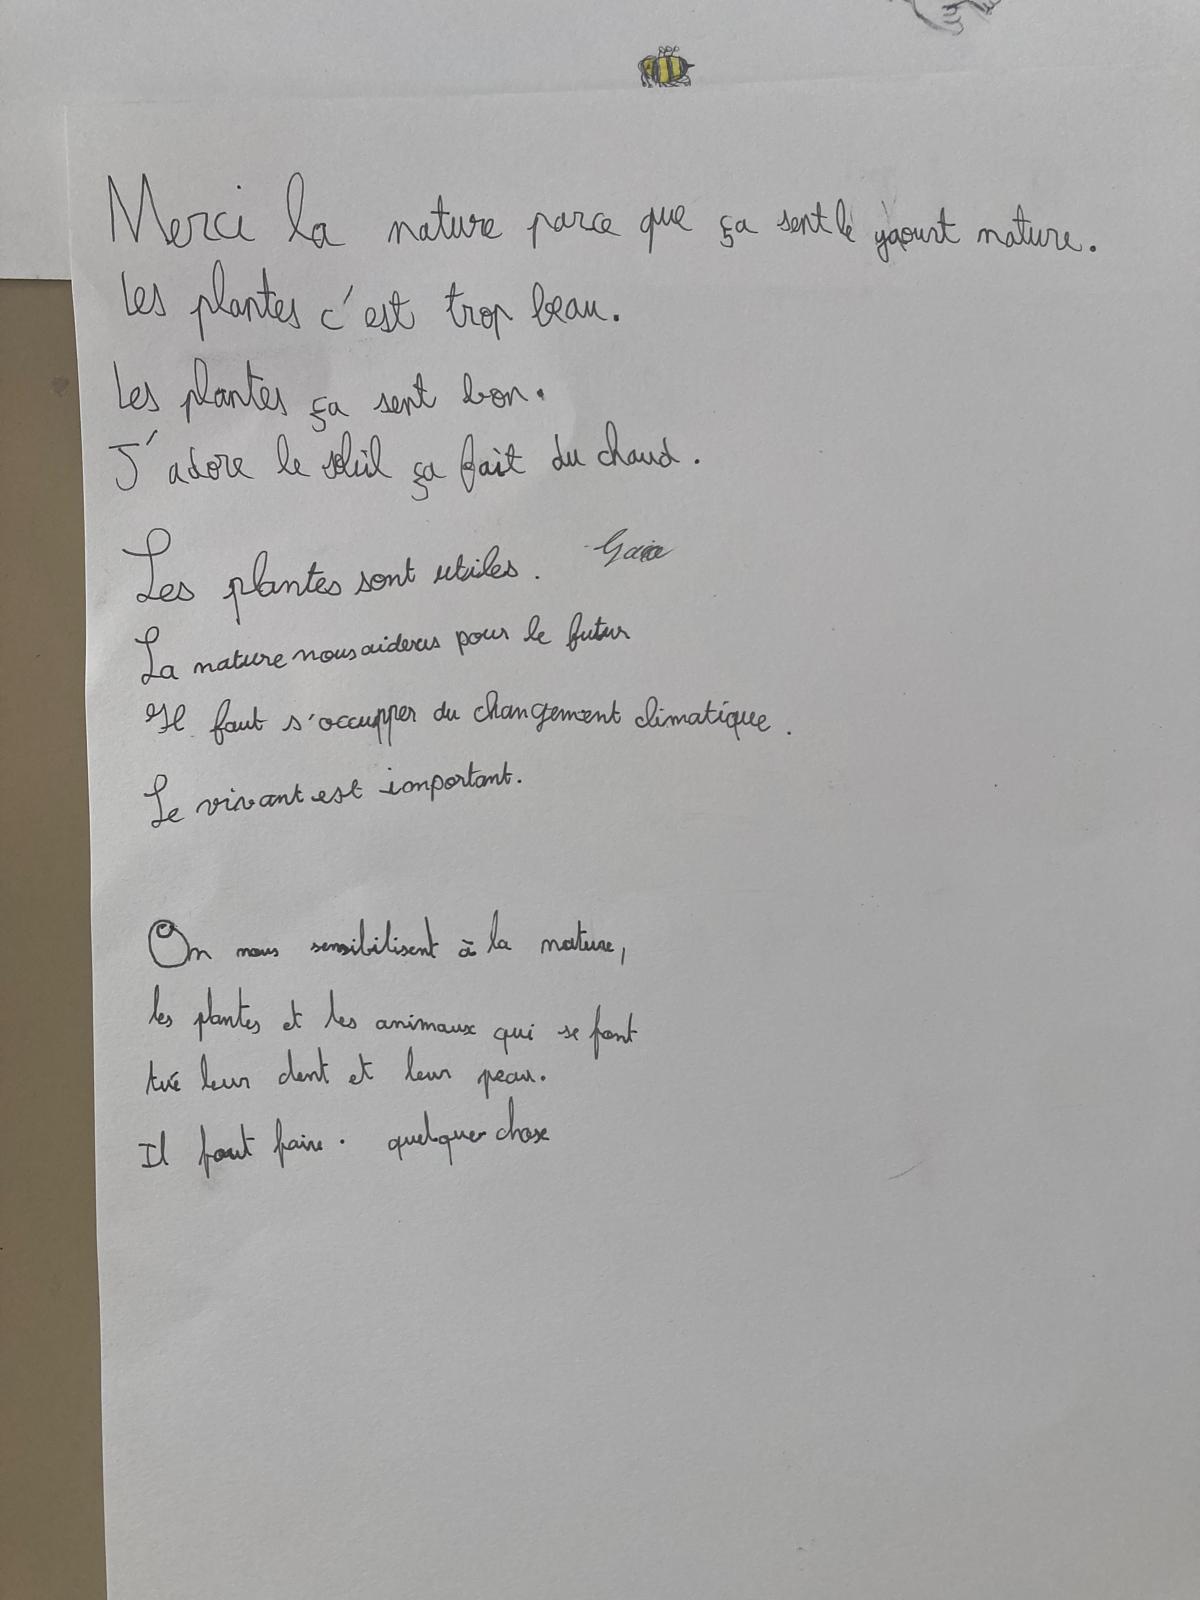 Merci la nature parce que ça sent le yaourt nature.
Les plantes c'est trop beau.
Les plantes ça sent bon.
J'adore le soleil ça fait du chaud.
Les plantes sont utiles. Gaia
La nature nous aideras pour le futur
Il faut s'occupper du changement climatique.
Le vivant est important.
On nous sensibilisent à la nature,
les plantes et les animaux qui se font
tué leur dent et leur peau.
Il faut faire. quelque chose